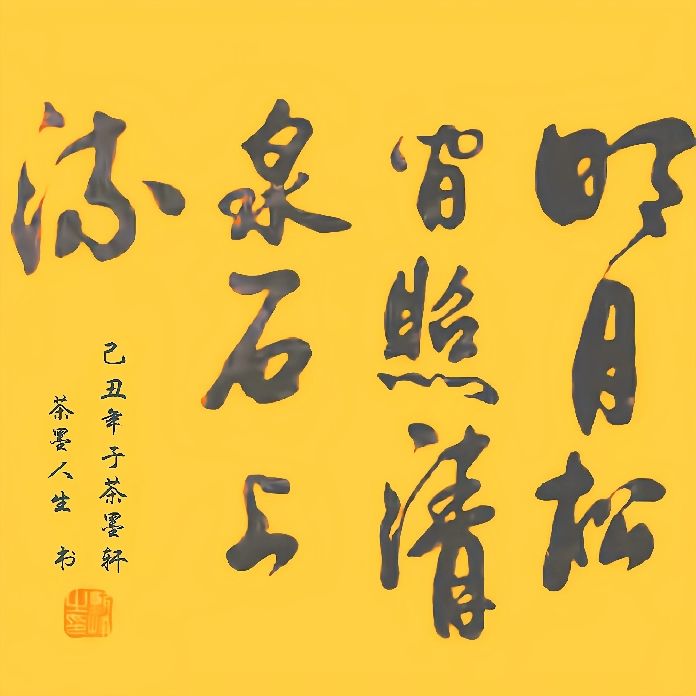 明月松
间照清
泉石上
流
己丑年于茶墨轩
茶墨人生 书